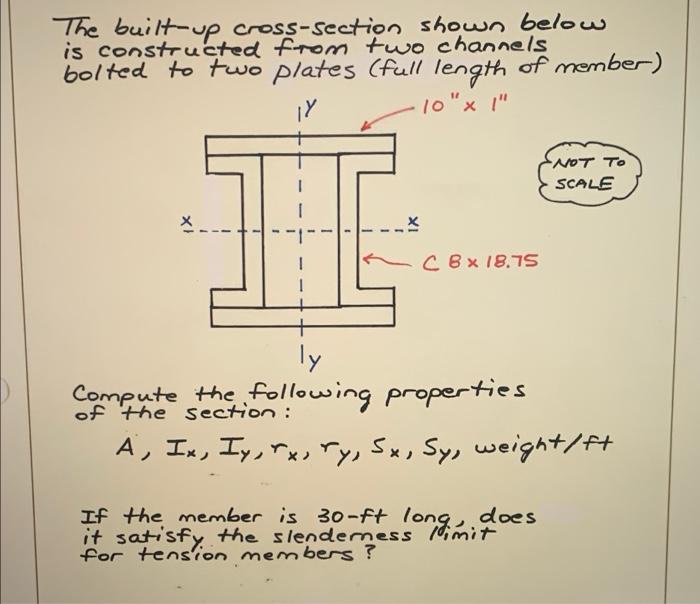 The built-up cross-section shown below
is constructed from two channels
bolted to two plates (full length of member)
y
10" x 1"
NOT TO
SCALE
x
x
C 8 x 18.75
y
Compute the following properties
of the section:
A, Ix, Iy, rx, ry, Sx, Sy, weight/ft
If the member is 30-ft long, does
it satisfy the slenderness limit
for tension members?